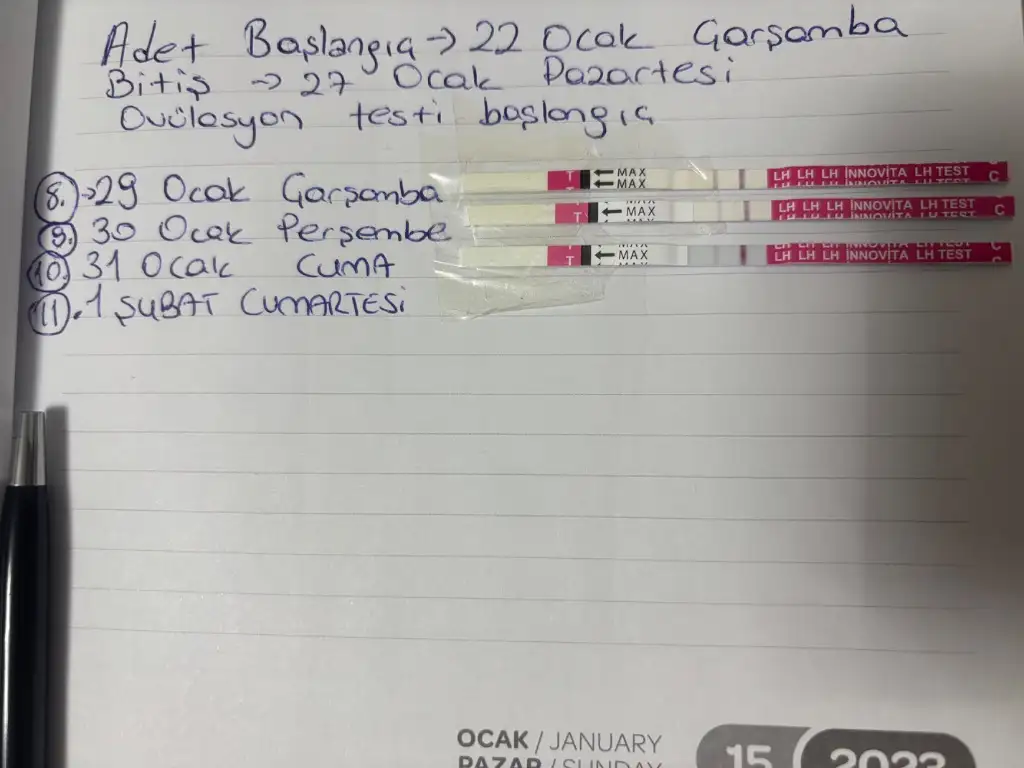 Adet Başlangıç → 22 Ocak Çarşamba
Bitiş → 27 Ocak Pazartesi
Ovülasyon testi başlangıç
8. → 29 Ocak Çarşamba T ← MAX ← MAX LH LH LH INNOVITA LH TEST C
9. 30 Ocak Perşembe T ← MAX LH LH LH INNOVITA LH TEST C
10. 31 Ocak CUMA T ← MAX LH LH LH INNOVITA LH TEST C
11. 1 ŞUBAT CUMARTESİ
OCAK / JANUARY
PAZAR / SUNDAY
15
2023